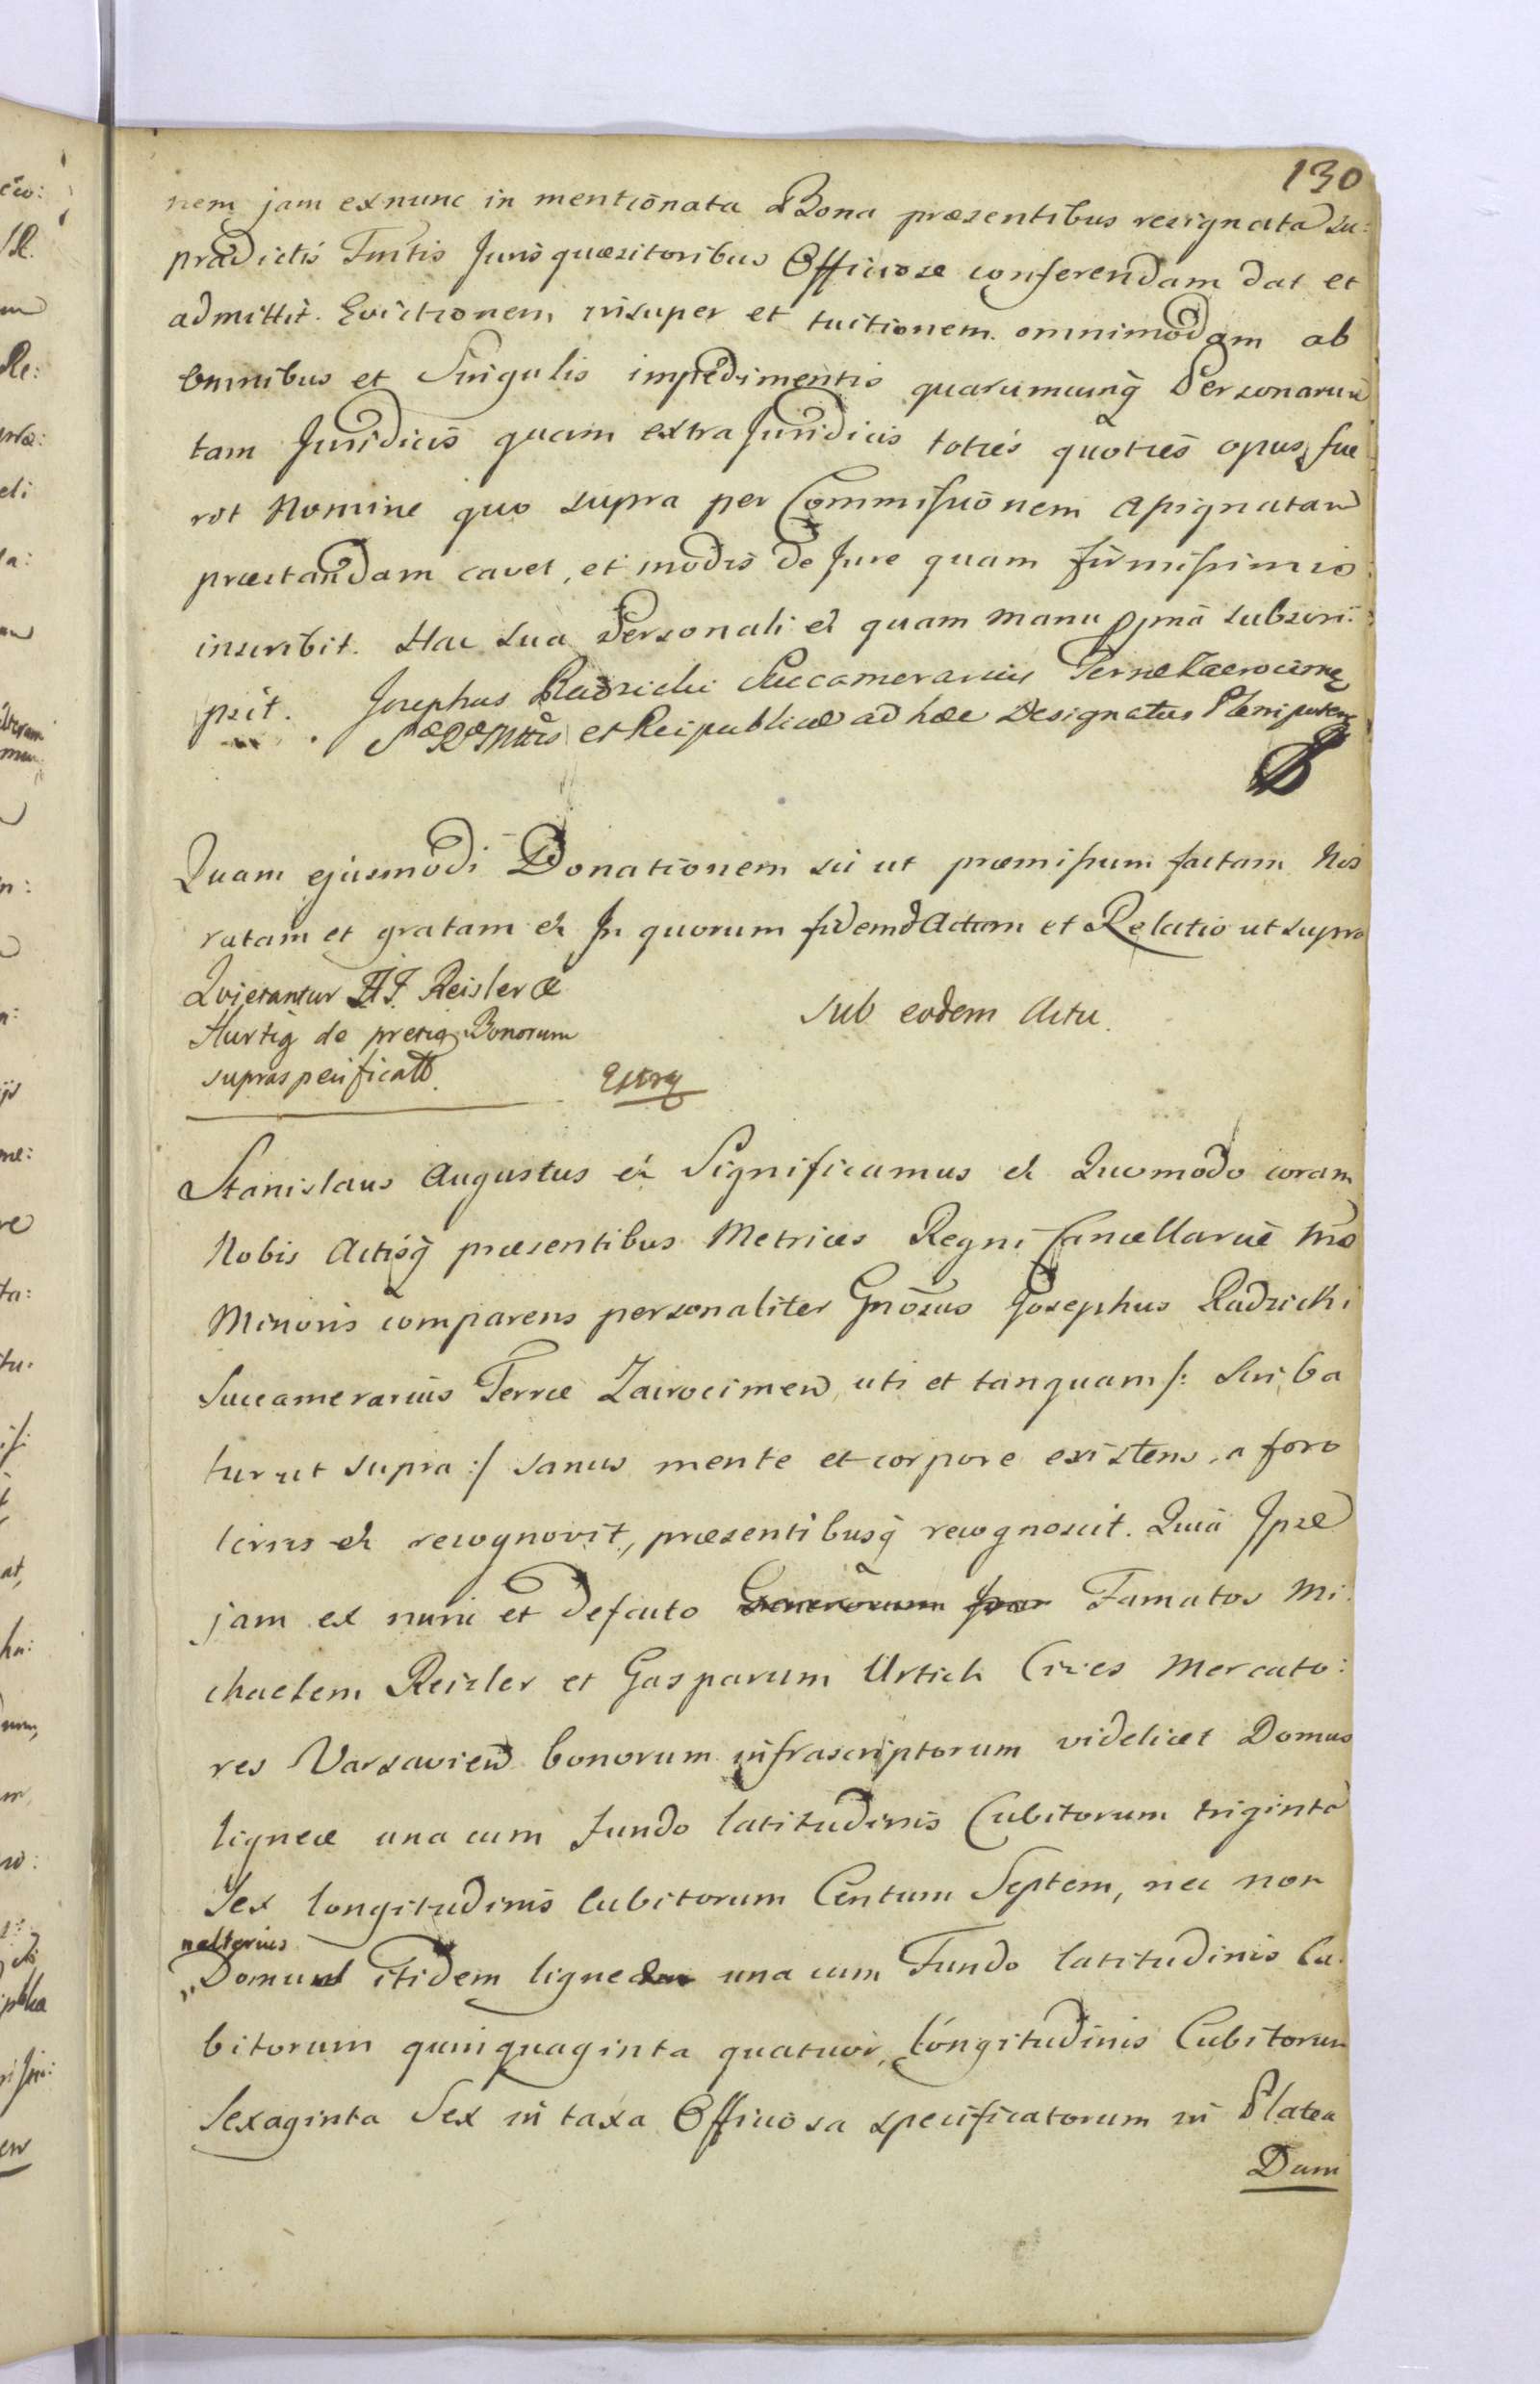 130
nem jam exnunc in mentionata Bona præsentibus resignata su:
prædictis Fmtis Juris quæsitoribus Officiose conferendam dat et
admittit. Evictionem insuper et tuitionem omnimodam ab
omnibus et Singulis impedimentis quarumcunq̃ Personarum
tam Juridicis quam extra Juridicis toties quoties opus fue
rit Nomine quo supra per Commissionem assignatam
præstandam cavet, et modis de Jure quam firmissimis
inscribit. Hac sua Personali et quam manu ppria subscri:
psit. Josephus Radzicki Succamerarius Terræ Zacrocime
Sæ Ræ Mttis et Reipublicæ ad hæc Designatus Plenipotens
Quam ejusmodi Donationem sic ut præmissum factam Nos
ratam et gratam et In quorum fidem Actum et Relatio ut supra
Quietantur FF. Reisler &
Hurtig de pretio Bonorum
supraspecificatt.
Extra
Sub eodem Actu.
Stanislaus Augustus et Significamus et Quomodo coram
Nobis Actisq̃ præsentibus Metrices Regni Cancellariæ
Minoris comparens personaliter Gnosus Josephus Radzicki
Succamerarius Terræ Zacrocimen uti et tanquam /: Scriba
tur ut supra :/ sanus mente et corpore existens, a foro
et recognovit, præsentibusq̃ recognoscit. Quia Ipse
jam ex nunc et defacto Generosum Famatos Mi:
chaelem Reizler et Gasparum Urtich Cives Mercato:
res Varsavien bonorum infrascriptorum videlicet Domus
ligneæ una cum fundo latitudinis Cubitorum triginta
Sex longitudinis Cubitorum Centum Septem, nec non
alterius
Domus itidem ligneæ una cum Fundo latitudinis Cu:
bitorum quinquaginta quatuor, longitudinis Cubitorum
Sexaginta Sex in taxa Officiosa specificatorum in Platea
Dam